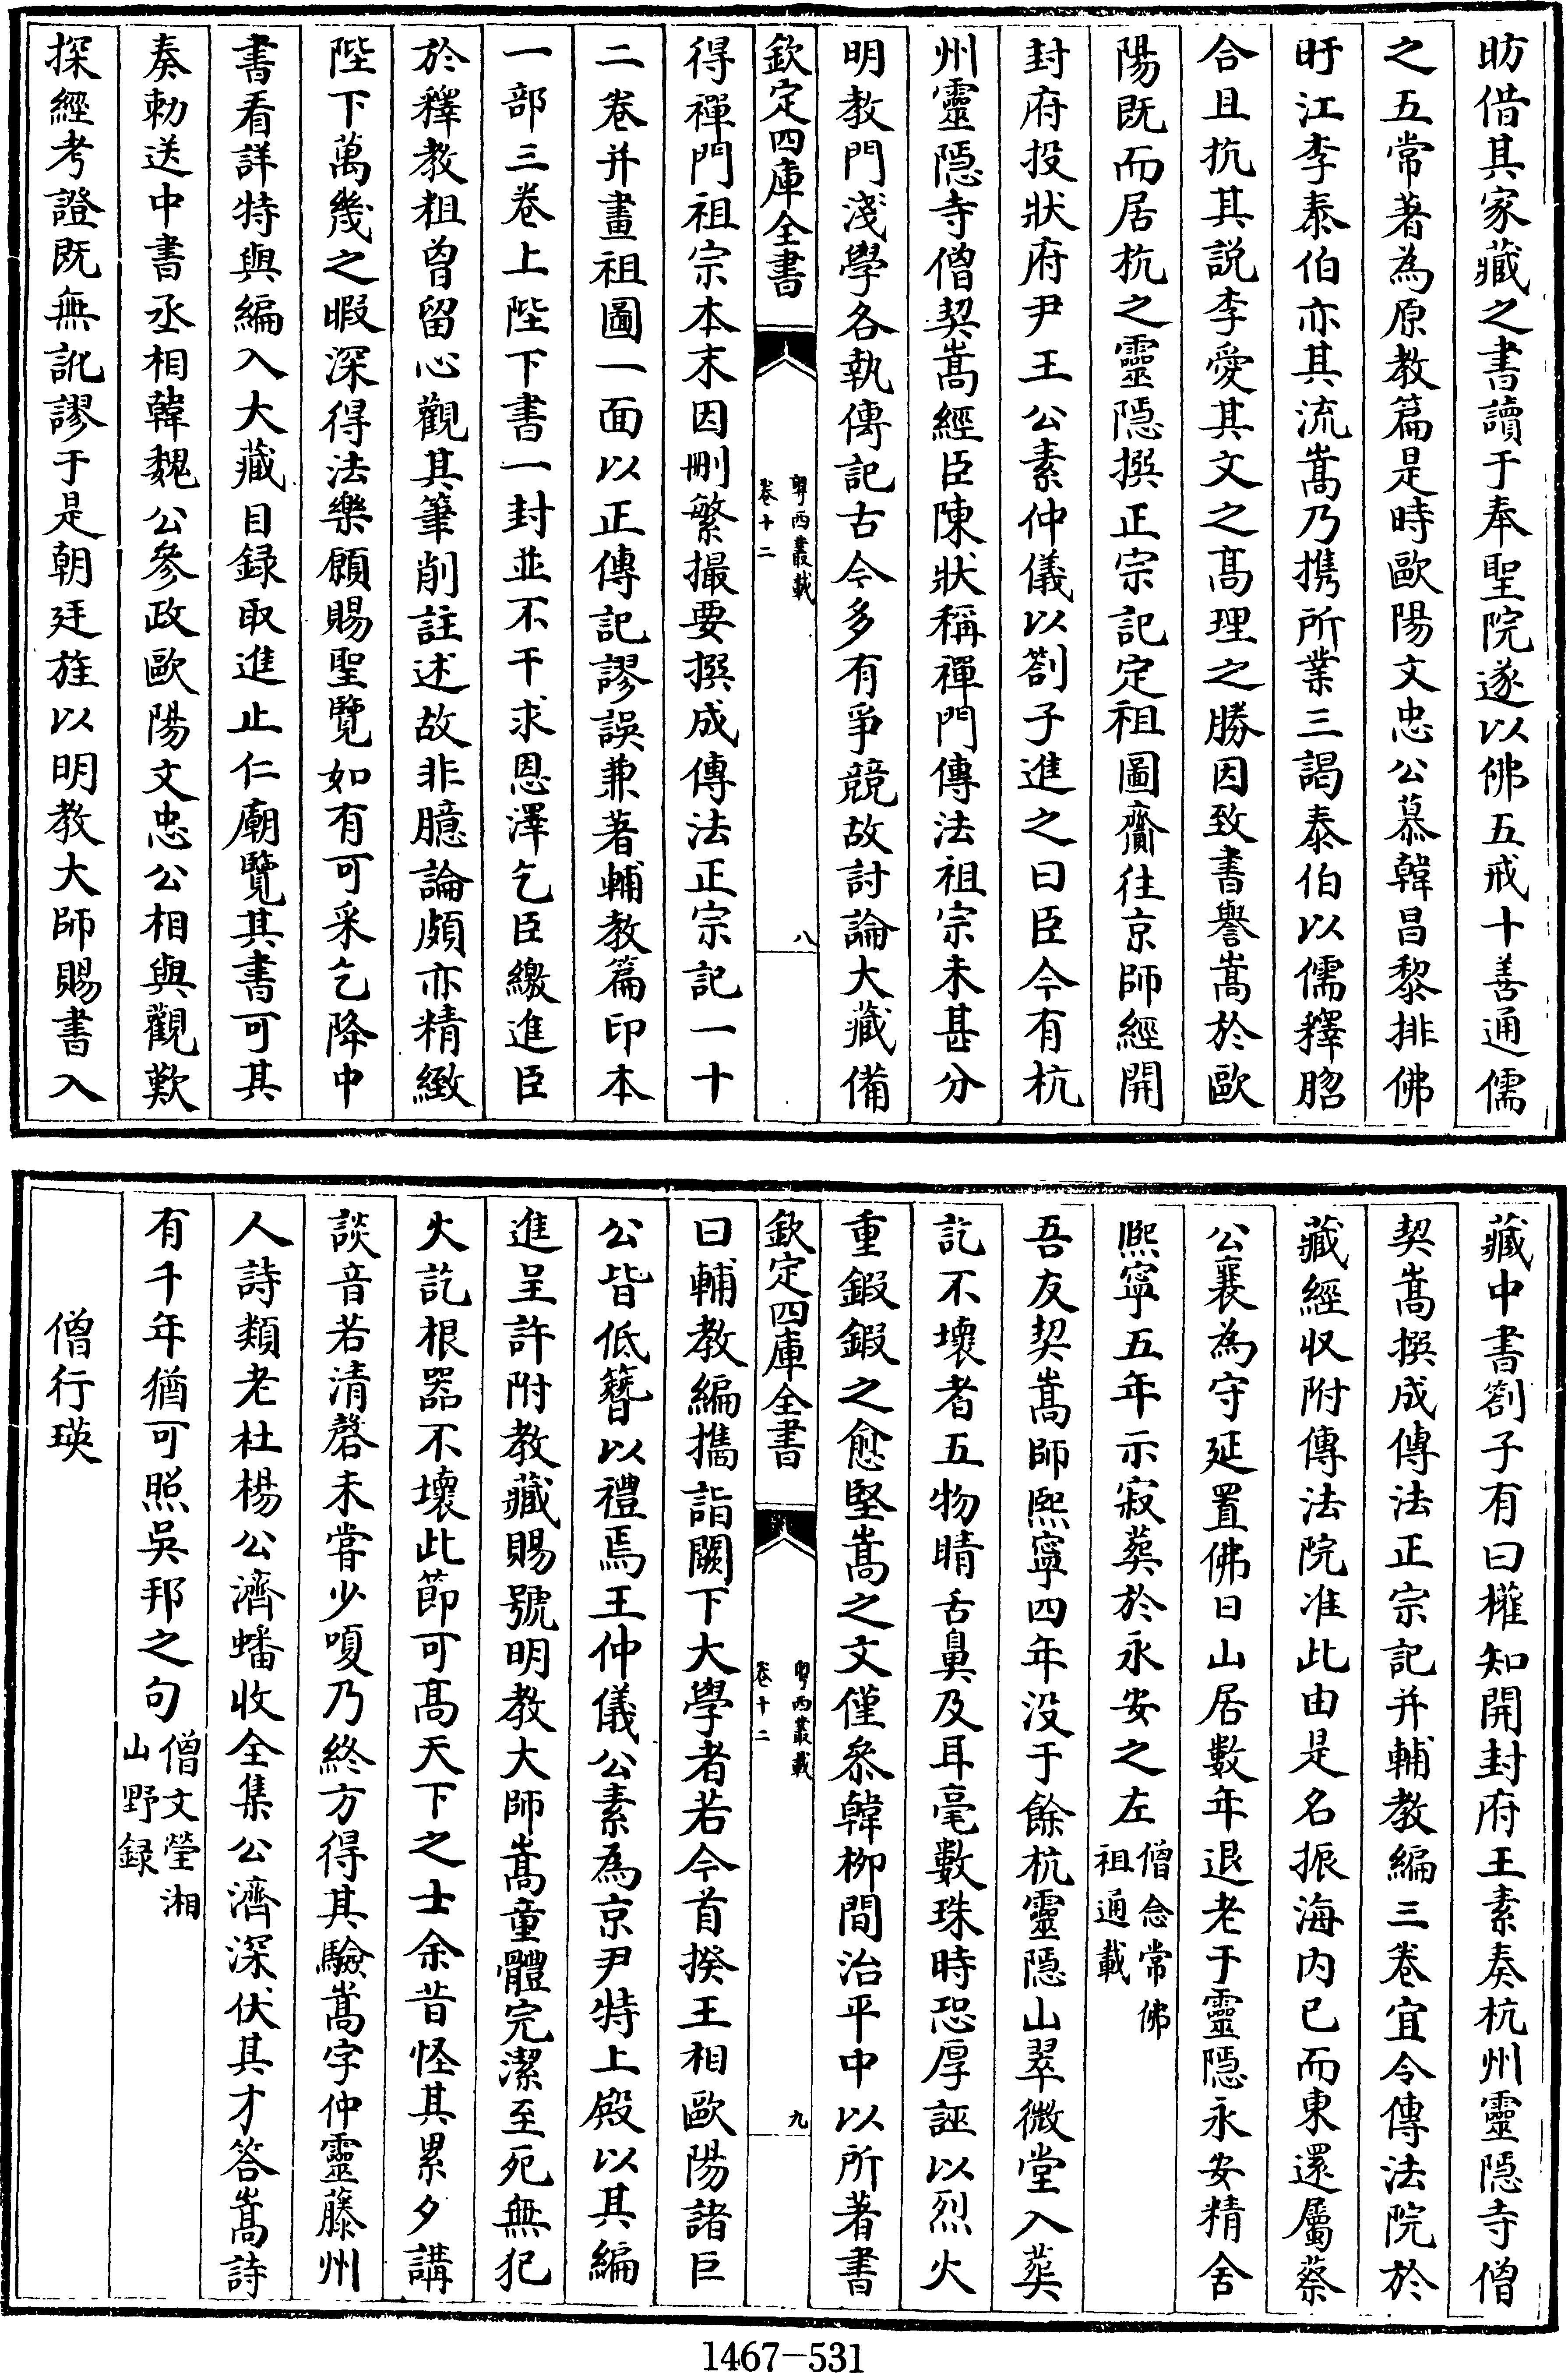 昉借其家藏之書讀于奉聖院遂以佛五戒十善通儒
之五常著為原教篇是時歐陽文忠公慕韓昌黎排佛
盱江李泰伯亦其流嵩乃携所業三謁泰伯以儒釋脗
合且抗其説李愛其文之髙理之勝因致書譽嵩於歐
陽既而居杭之靈隠撰正宗記定祖圖齎往京師經開
封府投狀府尹王公素仲儀以劄子進之曰臣今有杭
州靈隠寺僧契嵩經臣陳狀稱禪門傳法祖宗未甚分
明教門淺學各執傳記古今多有爭競故討論大藏備
欽定四庫全書
粤西叢載
卷十二
八
得禪門祖宗本末因刪繁撮要撰成傳法正宗記一十
二卷并畫祖圖一面以正傳記謬誤兼著輔教篇印本
一部三卷上陛下書一封並不干求恩澤乞臣繳進臣
於釋教粗曾留心觀其筆削註述故非臆論頗亦精緻
陛下萬幾之暇深得法樂願賜聖覽如有可采乞降中
書看詳特與編入大藏目録取進止仁廟覽其書可其
奏勅送中書丞相韓魏公參政歐陽文忠公相與觀歎
探經考證既無訛謬于是朝廷旌以明教大師賜書入
藏中書劄子有曰權知開封府王素奏杭州靈隠寺僧
契嵩撰成傳法正宗記并輔教編三卷宜令傳法院於
藏經収附傳法院准此由是名振海内已而東還屬蔡
公襄為守延置佛日山居數年退老于靈隠永安精舍
熈寧五年示寂葬於永安之左僧念常佛
祖通載
吾友契嵩師熈寧四年没于餘杭靈隠山翠微堂入葬
訖不壞者五物睛舌鼻及耳毫數珠時恐厚誣以烈火
重鍜鍜之愈堅嵩之文僅叅韓柳間治平中以所著書
欽定四庫全書
粤西叢載
卷十二
九
曰輔教編攜詣闕下大學者若今首揆王相歐陽諸巨
公皆低簪以禮焉王仲儀公素為京尹特上殿以其編
進呈許附教藏賜號明教大師嵩童體完潔至死無犯
火訖根器不壞此節可髙天下之士余昔怪其累夕講
談音若清磬未嘗少嗄乃終方得其驗嵩字仲靈藤州
人詩類老杜楊公濟蟠收全集公濟深伏其才答嵩詩
有千年猶可照吳邦之句僧文瑩湘
山野録
僧行瑛
1467-531